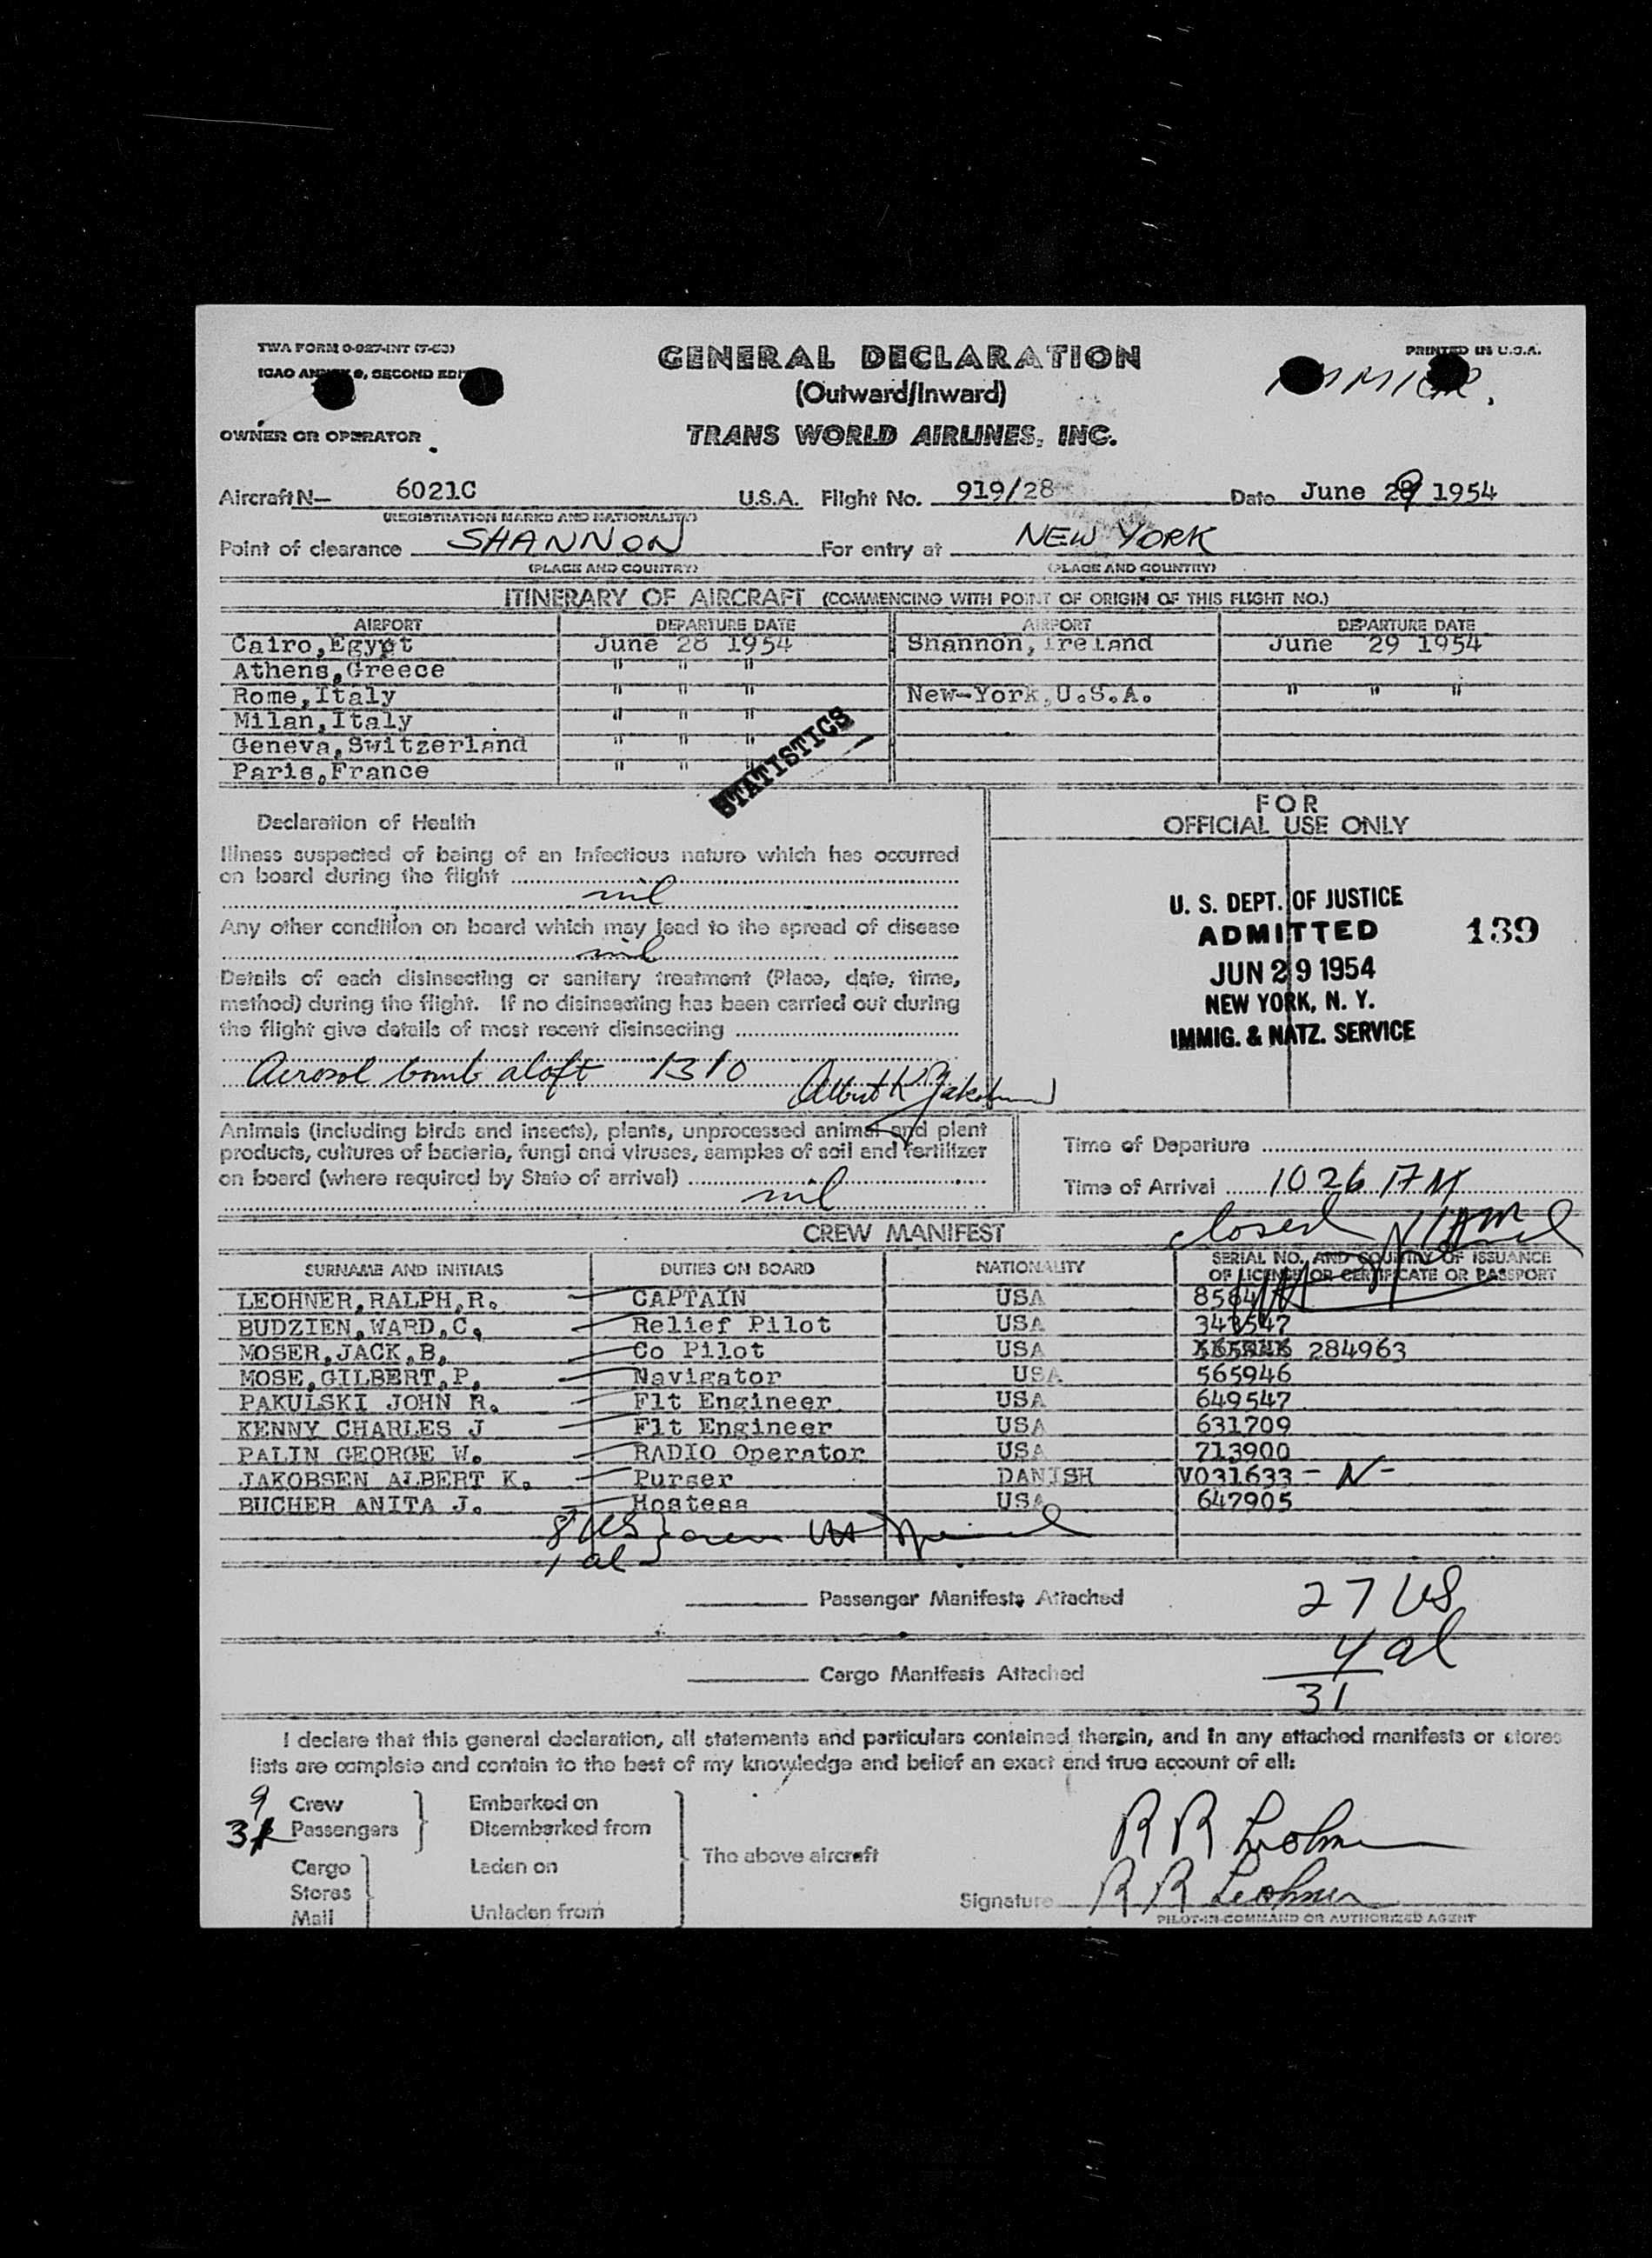 TWA FORM O-927-INT (7-53)
PRINTED IN U.S.A.
GENERAL DECLARATION
(Outward/Inward)
OWNER OR OPERATOR
TRANS WORLD AIRLINES, INC.
Aircraft N— 6021C U.S.A. Flight No. 919/28 Date June 29 1954
(REGISTRATION MARKS AND NATIONALITY)
Point of clearance SHANNON For entry at NEW YORK
(PLACE AND COUNTRY) (PLACE AND COUNTRY)
ITINERARY OF AIRCRAFT (COMMENCING WITH POINT OF ORIGIN OF THIS FLIGHT NO.)
AIRPORT DEPARTURE DATE AIRPORT DEPARTURE DATE
Cairo,Egypt June 28 1954 Shannon, Ireland June 29 1954
Athens,Greece " " "
Rome,Italy " " " New-York,U.S.A. " " "
Milan,Italy " " "
Geneva,Switzerland " " "
Paris,France " " "
STATISTICS
Declaration of Health
Illness suspected of being of an infectious nature which has occurred
on board during the flight
nil
Any other condition on board which may lead to the spread of disease
nil
Details of each disinsecting or sanitary treatment (Place, date, time,
method) during the flight. If no disinsecting has been carried out during
the flight give details of most recent disinsecting
Aerosol bomb aloft 1310
FOR
OFFICIAL USE ONLY
U. S. DEPT. OF JUSTICE
ADMITTED 139
JUN 29 1954
NEW YORK, N. Y.
IMMIG. & NATZ. SERVICE
Animals (including birds and insects), plants, unprocessed animal and plant
products, cultures of bacteria, fungi and viruses, samples of soil and fertilizer
on board (where required by State of arrival)
nil
Time of Departure
Time of Arrival 1026 AM
closed
CREW MANIFEST
SURNAME AND INITIALS DUTIES ON BOARD NATIONALITY SERIAL NO. AND COUNTRY OF ISSUANCE
OF LICENSE OR CERTIFICATE OR PASSPORT
LEOHNER,RALPH,R. CAPTAIN USA
BUDZIEN,WARD,C, Relief Pilot USA
MOSER,JACK,B, Co Pilot USA 284963
MOSE,GILBERT,P, Navigator USA 565946
PAKULSKI JOHN R. Flt Engineer USA 649547
KENNY CHARLES J Flt Engineer USA 631709
PALIN GEORGE W. RADIO Operator USA 713900
JAKOBSEN ALBERT K. Purser DANISH V031633 - N -
BUCHER ANITA J. Hostess USA 647905
8 US
1 al
Passenger Manifests Attached
27 US
4 al
Cargo Manifests Attached
31
I declare that this general declaration, all statements and particulars contained therein, and in any attached manifests or stores
lists are complete and contain to the best of my knowledge and belief an exact and true account of all:
9 Crew Embarked on
Passengers Disembarked from
Cargo Laden on
Stores
Mail Unladen from
The above aircraft
R R Leohner
Signature R R Leohner
PILOT-IN-COMMAND OR AUTHORIZED AGENT